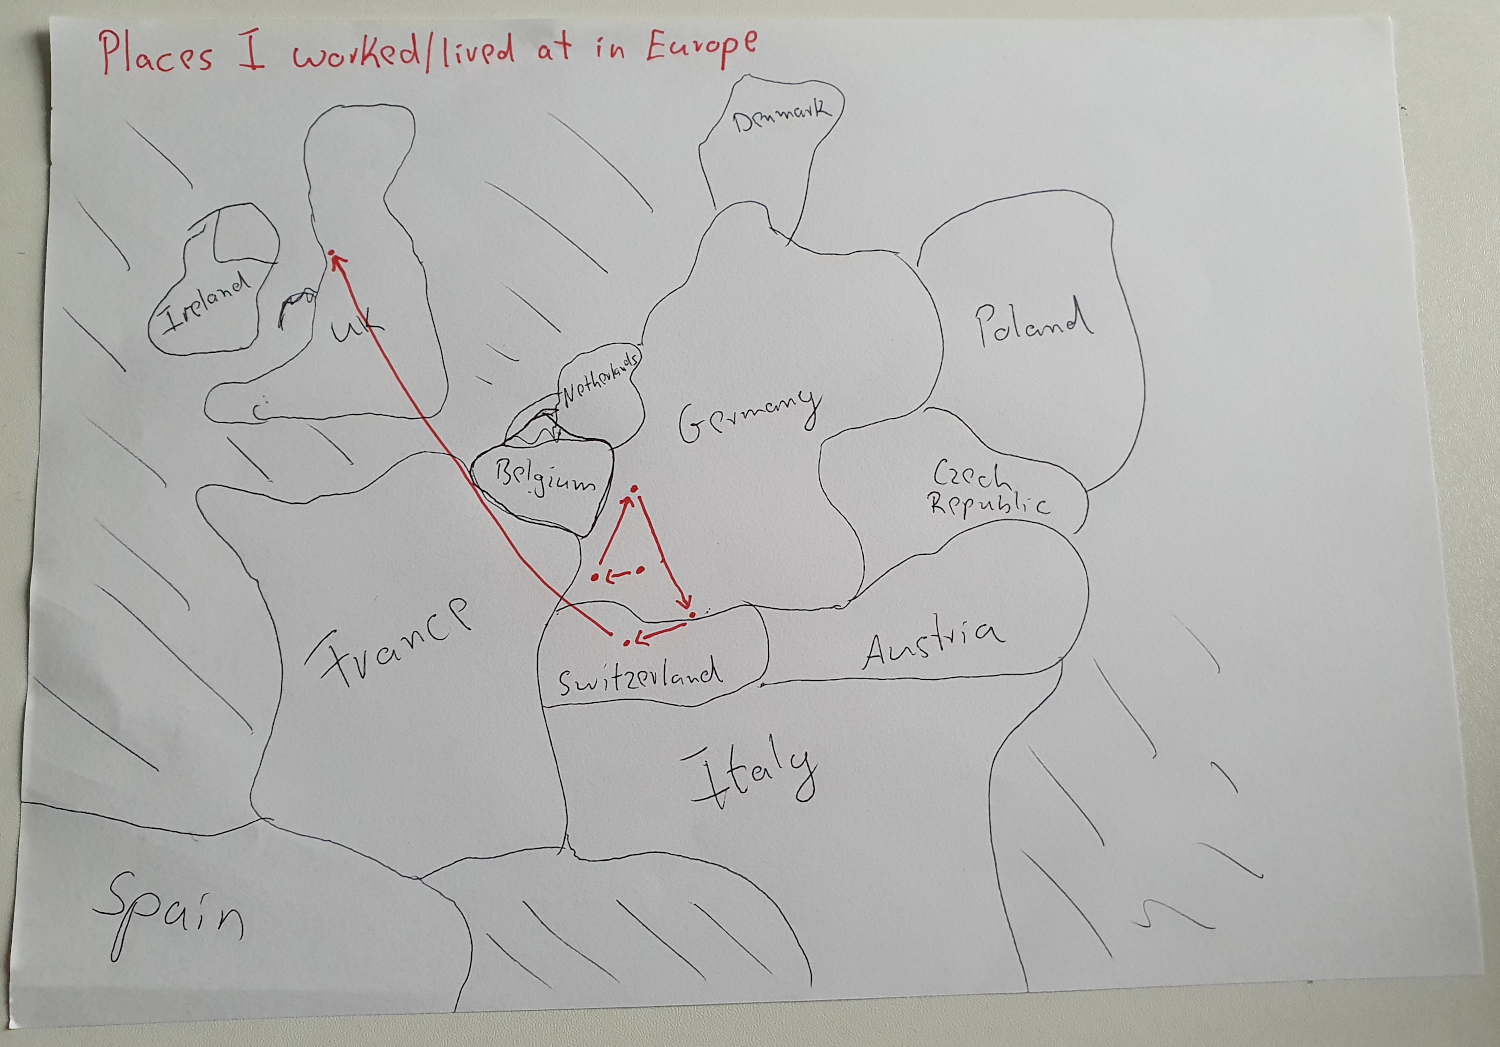 Places I worked/lived at in Europe
Denmark
Ireland
UK
Poland
Netherlands
Germany
Belgium
Czech
Republic
France
Switzerland
Austria
Italy
Spain